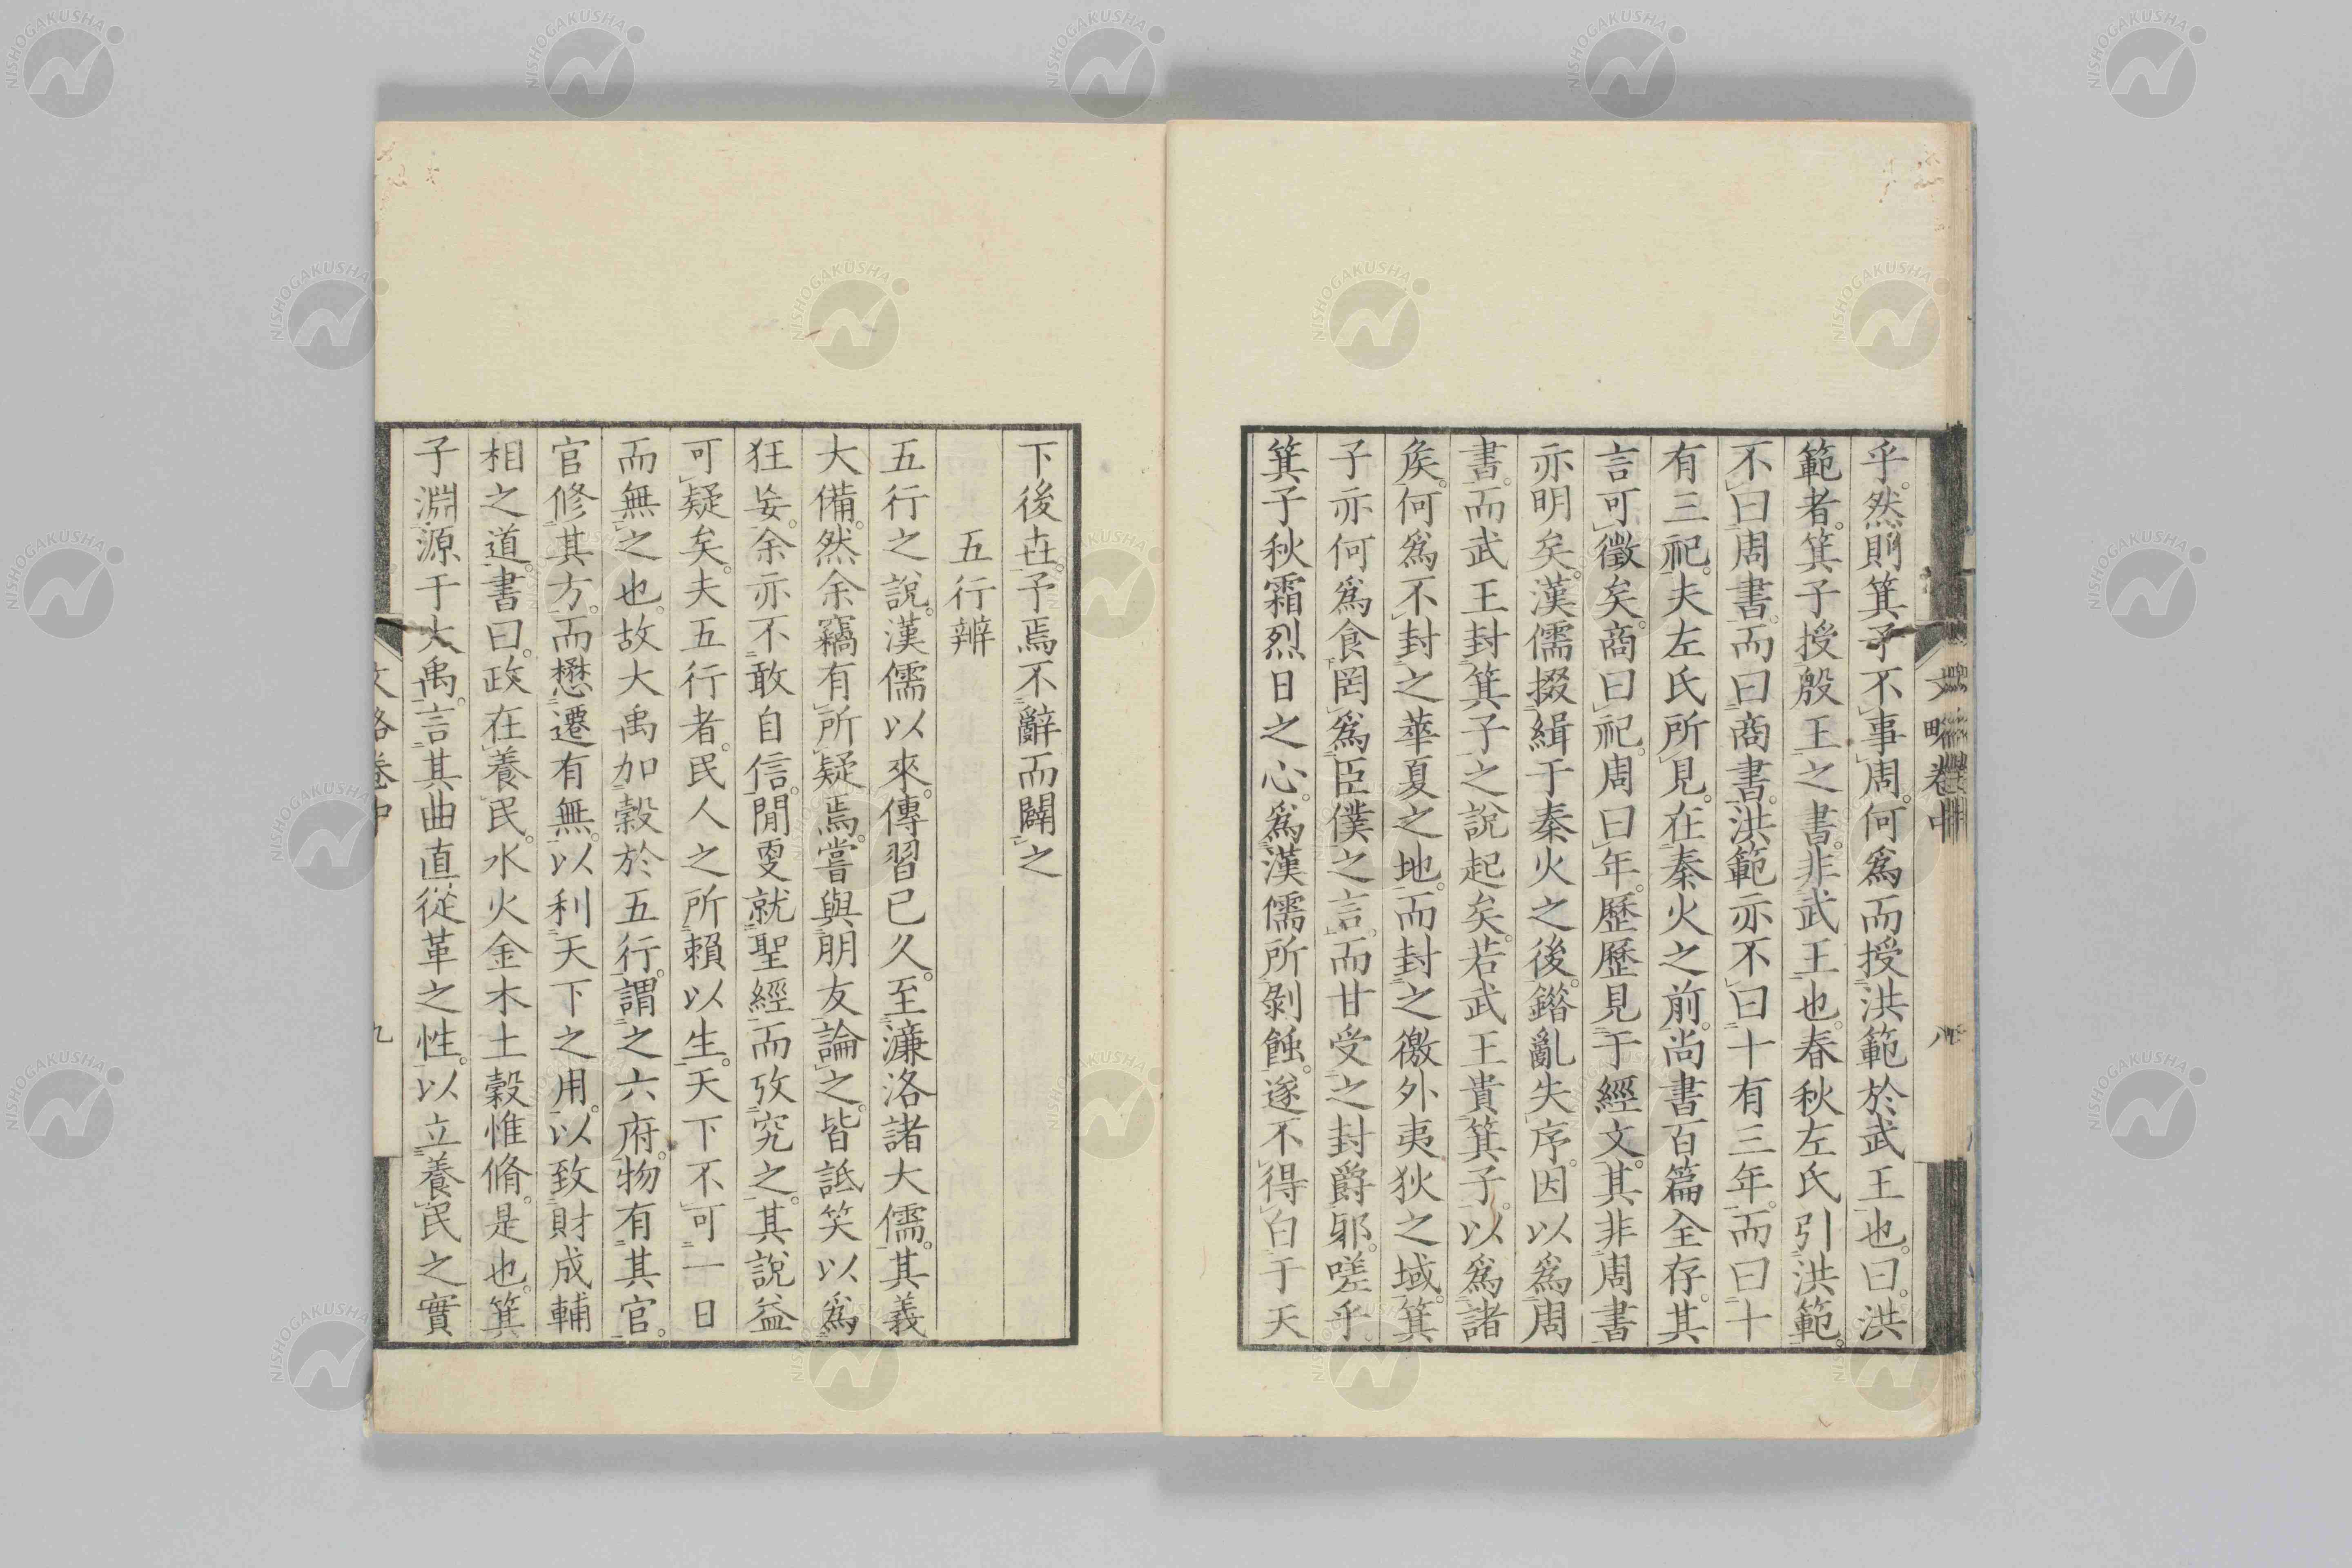 乎。然則箕子不事周。何爲而授洪範於武王也。曰。洪
範者。箕子授殷王之書。非武王也。春秋左氏引洪範。
不曰周書。而曰商書。洪範亦不曰十有三年。而曰十
有三祀。夫左氏所見。在秦火之前。尚書百篇全存。其
言可徵矣。商曰祀。周曰年。歷歷見于經文。其非周書
亦明矣。漢儒掇緝于秦火之後。鐕亂失序。因以爲周
書。而武王封箕子之說起矣。若武王貴箕子。以爲諸
矦。何爲不封之華夏之地。而封之徼外夷狄之域。箕
子亦何爲食罔爲臣僕之言。而甘受之封爵邪。嗟乎
箕子秋霜烈日之心。爲漢儒所剝蝕。遂不得白于天
文略卷中
八
下後世。予焉不辭而闢之
五行辨
五行之說。漢儒以來。傳習已久。至濂洛諸大儒。其義
大備。然余竊有所疑焉。嘗與朋友論之。皆詆笑以爲
狂妄。余亦不敢自信。閒更就聖經而攷究之。其說益
可疑矣。夫五行者。民人之所賴以生。天下不可一日
而無之也。故大禹加穀於五行。謂之六府。物有其官。
官修其方。而懋遷有無。以利天下之用。以致財成輔
相之道。書曰。政在養民。水火金木土穀惟脩。是也。箕
子淵源于大禹。言其曲直從革之性。以立養民之實
文略卷中
九
NISHOGAKUSHA